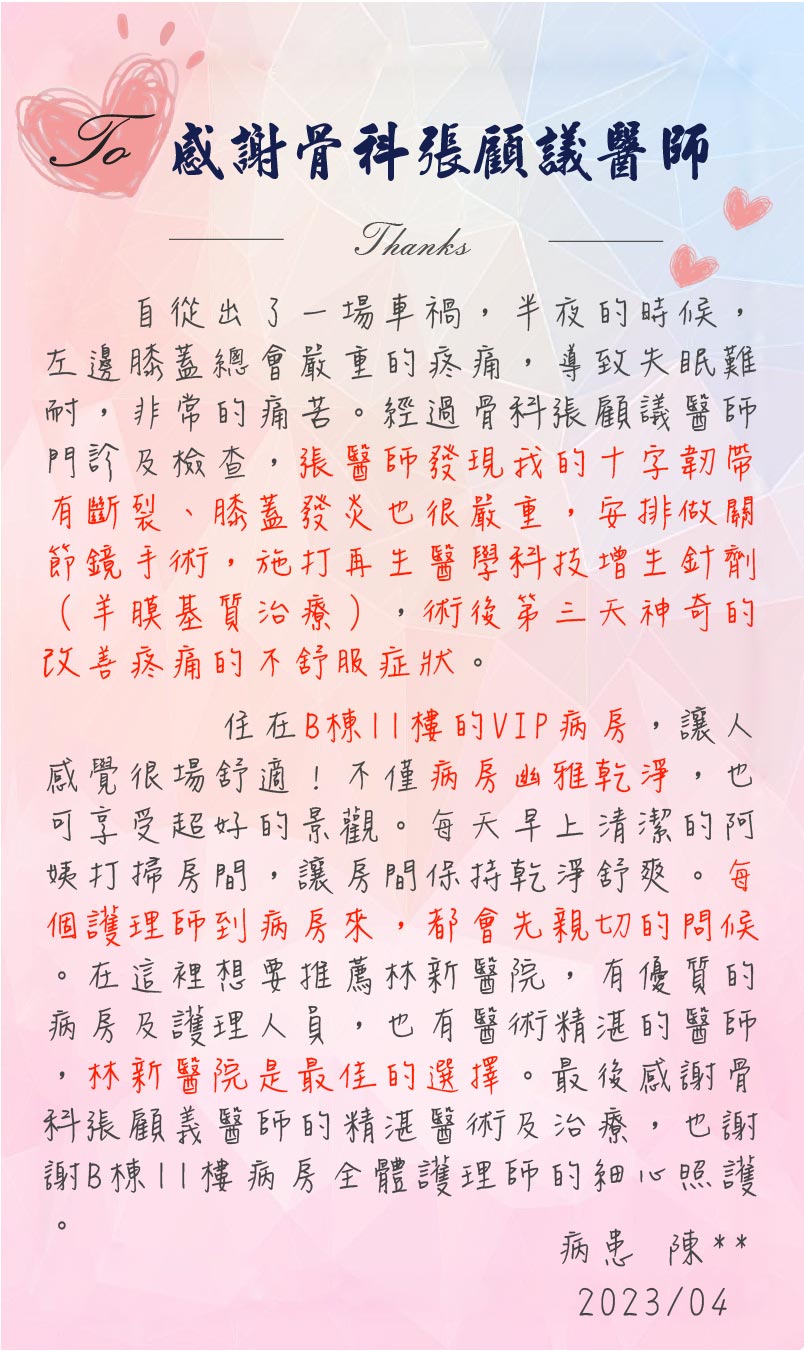 To 感謝骨科張顧議醫師
Thanks
自從出了一場車禍，半夜的時候，
左邊膝蓋總會嚴重的疼痛，導致失眠難
耐，非常的痛苦。經過骨科張顧議醫師
門診及檢查，張醫師發現我的十字韌帶
有斷裂、膝蓋發炎也很嚴重，安排做關
節鏡手術，施打再生醫學科技增生針劑
（羊膜基質治療），術後第三天神奇的
改善疼痛的不舒服症狀。
住在B棟11樓的VIP病房，讓人
感覺很場舒適！不僅病房幽雅乾淨，也
可享受超好的景觀。每天早上清潔的阿
姨打掃房間，讓房間保持乾淨舒爽。每
個護理師到病房來，都會先親切的問候
。在這裡想要推薦林新醫院，有優質的
病房及護理人員，也有醫術精湛的醫師
，林新醫院是最佳的選擇。最後感謝骨
科張顧義醫師的精湛醫術及治療，也謝
謝B棟11樓病房全體護理師的細心照護
。
病患 陳**
2023/04